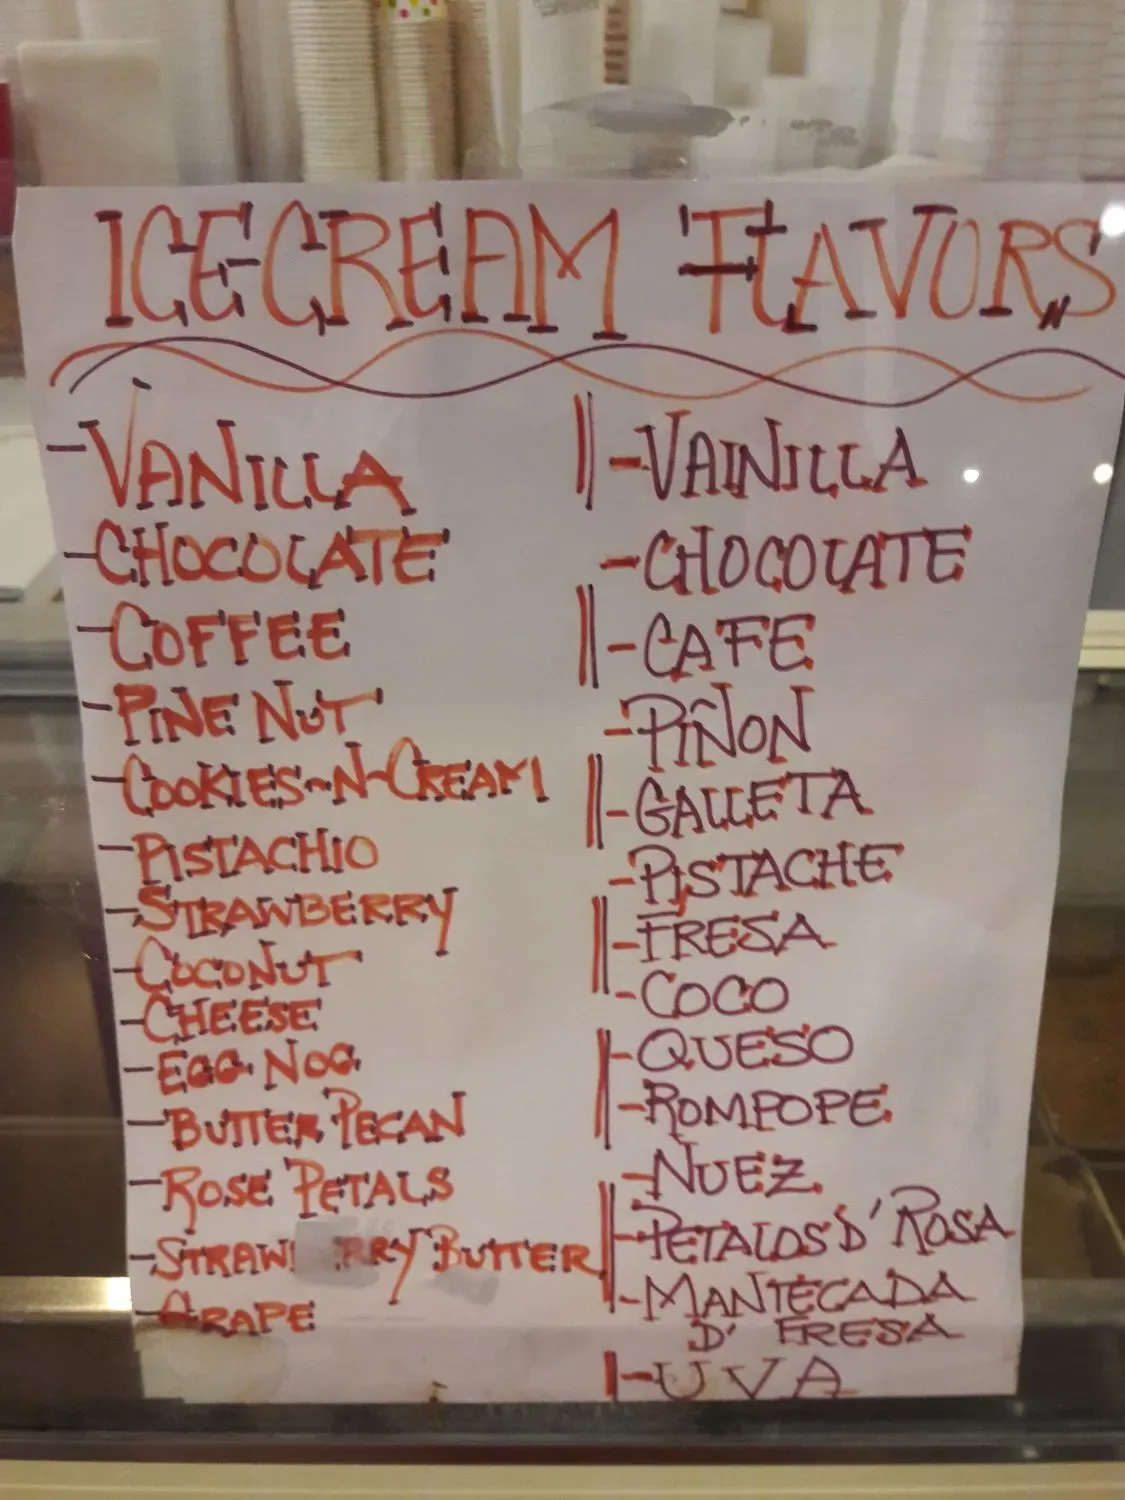 ICE-CREAM FLAVORS
-VANILLA
-CHOCOLATE
-COFFEE
-PINE NUT
-COOKIES-N-CREAM
-PISTACHIO
-STRAWBERRY
-COCONUT
-CHEESE
-EGG NOG
-BUTTER PECAN
-ROSE PETALS
-BUTTER
-GRAPE
-VAINILLA
-CHOCOLATE
-CAFE
-PIÑON
-GALLETA
-PISTACHE
-FRESA
-COCO
-QUESO
-ROMPOPE
-NUEZ
-PETALOS D' ROSA
-MANTECADA
D' FRESA
-UVA